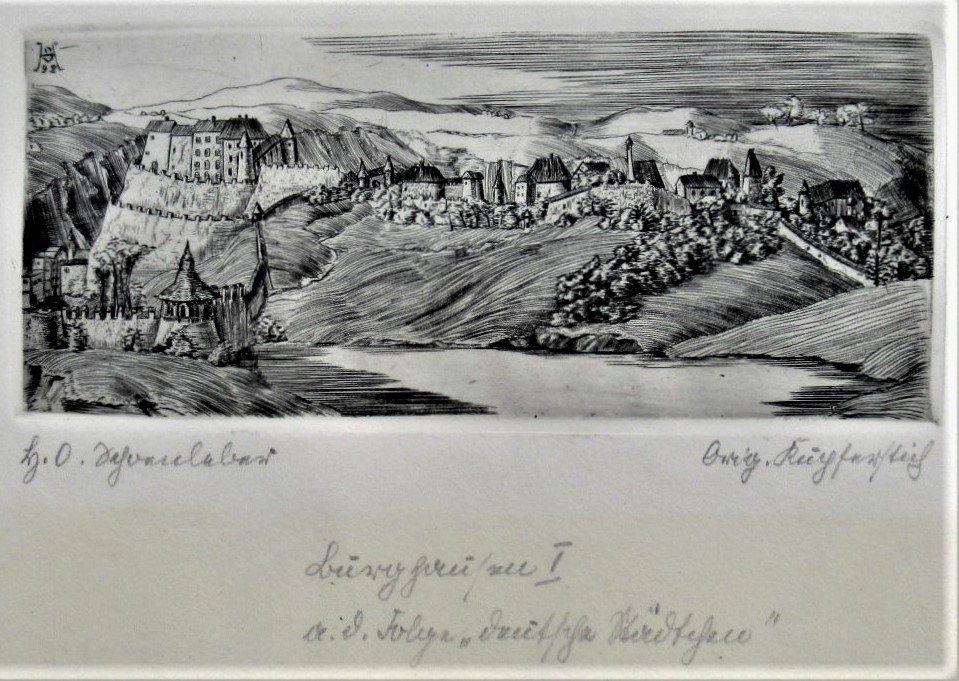 H. O. Schönleber Orig. Kupferstich
Burghausen I
a. d. Folge „deutsche Städtchen"